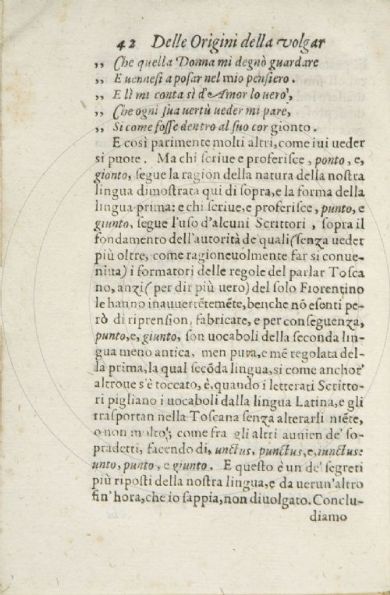 42 Delle Origini della volgar
„ Che quella Donna mi degnò guardare
„ E uennesi a posar nel mio pensiero.
„ E lì mi conta sì d'Amor lo uero,
„ Che ogni sua uertù ueder mi pare,
„ Sì come fosse dentro al suo cor gionto.
E così parimente molti altri, come iui ueder
si puote. Ma chi scriue e proferisce, ponto, e,
gionto, segue la ragion della natura della nostra
lingua dimostrata qui di sopra, e la forma della
lingua prima: e chi scriue, e proferisce, punto, e
giunto, segue l'uso d'alcuni Scrittori, sopra il
fondamento dell'autorità de quali (senza ueder
più oltre, come ragioneuolmente far si conue-
niua) i formatori delle regole del parlar Tosca
no, anzi (per dir più uero) del solo Fiorentino
le hanno inauuertẽtemẽte, benche nõ esenti pe-
rò di riprension, fabricate, e per conseguenza,
punto, e, giunto, son uocaboli della seconda lin-
gua meno antica, men pura, e mẽ regolata del-
la prima, la qual secõda lingua, si come anchoe'
altroue s'è toccato, è, quando i letterati Scritto-
ri pigliano i uocaboli dalla lingua Latina, e gli
trasportan nella Toscana senza alterarli niẽte,
o non molto, come fra gli altri auuien de' so-
pradetti, facendo di, unctus, punctus, e, iunctus:
unto, punto, e giunto. E questo è un de' segreti
più riposti della nostra lingua, e da uerun'altro
fin'hora, che io sappia, non diuolgato. Conclu-
diamo